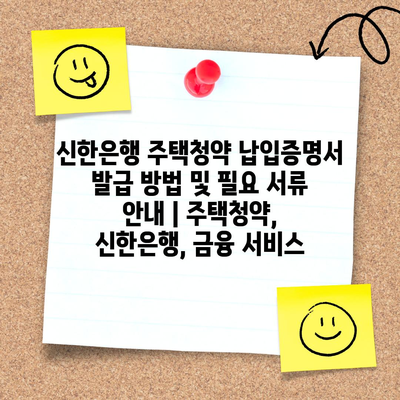 신한은행 주택청약 납입증명서
발급 방법 및 필요 서류
안내 | 주택청약,
신한은행, 금융 서비스